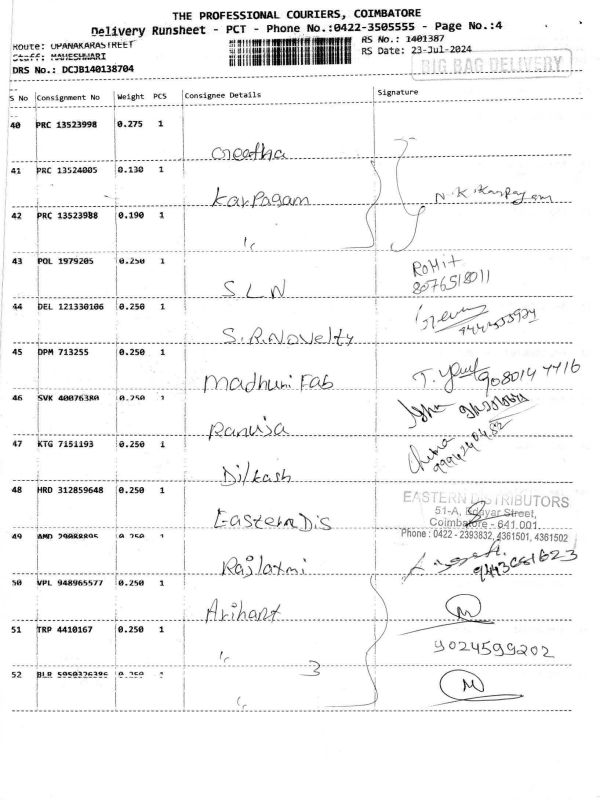 THE PROFESSIONAL COURIERS, COIMBATORE
Delivery Runsheet - PCT - Phone No.:0422-3505555 - Page No.:4
Route: OPANAKARASTREET
Staff: MAHESHWARI
DRS No.: DCJB140138704
RS No.: 1401387
RS Date: 23-Jul-2024
BIG BAG DELIVERY
S No Consignment No Weight PCS Consignee Details Signature
40 PRC 13523998 0.275 1
Geetha
41 PRC 13524005 0.130 1
Karpagam
N.K.Karpagam
42 PRC 13523988 0.190 1
"
43 POL 1979205 0.250 1
S L N
Rohit
8076518011
44 DEL 121330106 0.250 1
S.R.Novelty
45 DPM 713255 0.250 1
Madhuni Fab
T.
908014 7716
46 SVK 40076380 0.250 1
Ranuja
47 KTG 7151193 0.250 1
Dilkash
48 HRD 312859648 0.250 1
Eastern Dis
EASTERN DISTRIBUTORS
51-A, Edayar Street,
Coimbatore - 641 001.
Phone : 0422 - 2393832, 4361501, 4361502
49 AMD 0.250 1
Rajlaxmi
9443681623
50 VPL 948965577 0.250 1
Arihant
M
51 TRP 4410167 0.250 1
"
9024599202
3
52 BLR 0.250 1
"
M